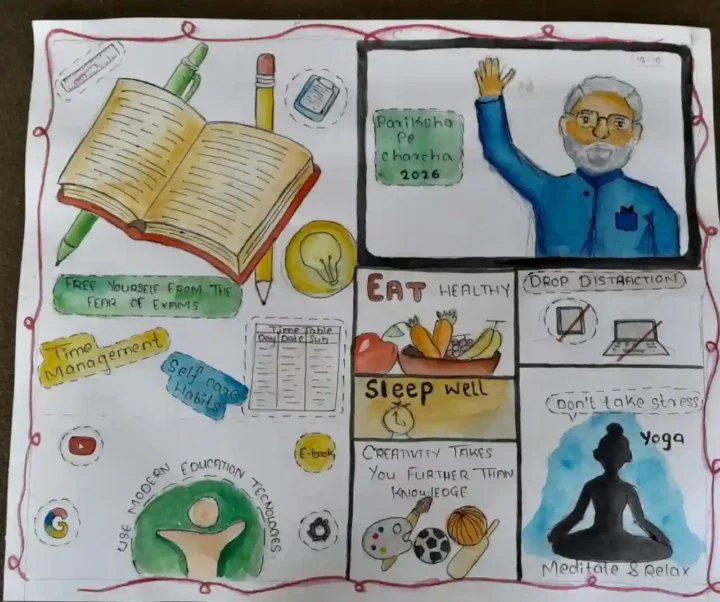 Pariksha
Pe
charcha
2026
FREE YOURSELF FROM THE
FEAR OF EXAMS
Time
Management
Self care
Habits
Time Table
Day Date Sub
EAT HEALTHY
DROP DISTRACTION
Sleep well
Don't take stress
Yoga
CREATIVITY TAKES
YOU FURTHER THAN
KNOWLEDGE
E-book
USE MODERN EDUCATION TECNOLOGIES
Meditate & Relax